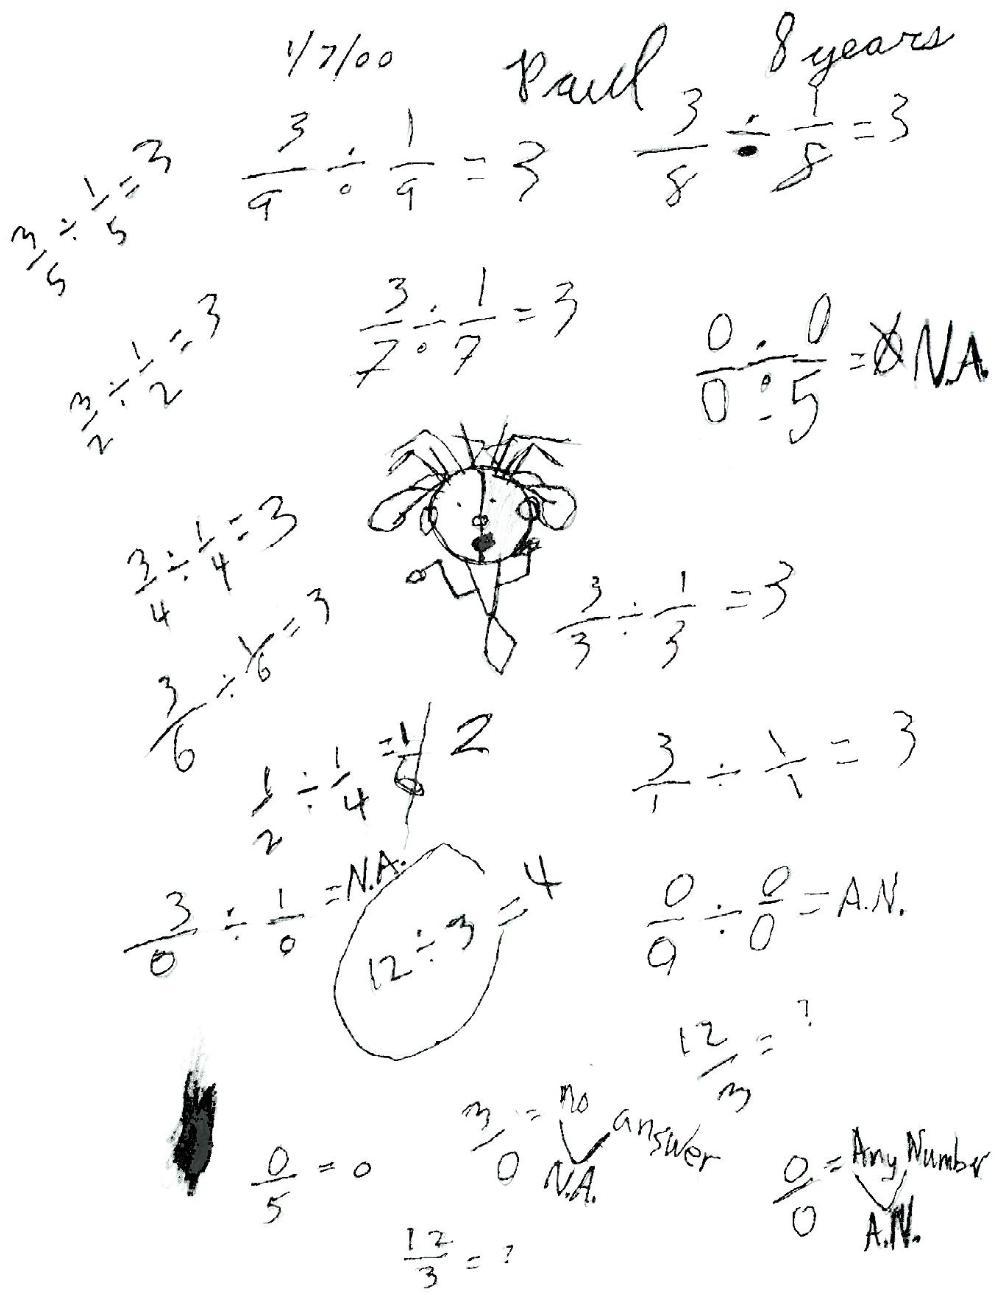 1/7/00 Paul 8 years
3/5 ÷ 1/5 = 3
3/9 ÷ 1/9 = 3
3/8 ÷ 1/8 = 3
3/2 ÷ 1/2 = 3
3/7 ÷ 1/7 = 3
0/0 ÷ 0/5 = 0 N.A.
3/4 ÷ 1/4 = 3
3/3 ÷ 1/3 = 3
3/6 ÷ 1/6 = 3
1/2 ÷ 1/4 = 2
3/1 ÷ 1/1 = 3
3/0 ÷ 1/0 = N.A.
12 ÷ 3 = 4
0/9 ÷ 0/0 = A.N.
12/3 = ?
0/5 = 0
3/0 = no answer
N.A.
0/0 = Any Number
A.N.
12/3 = ?